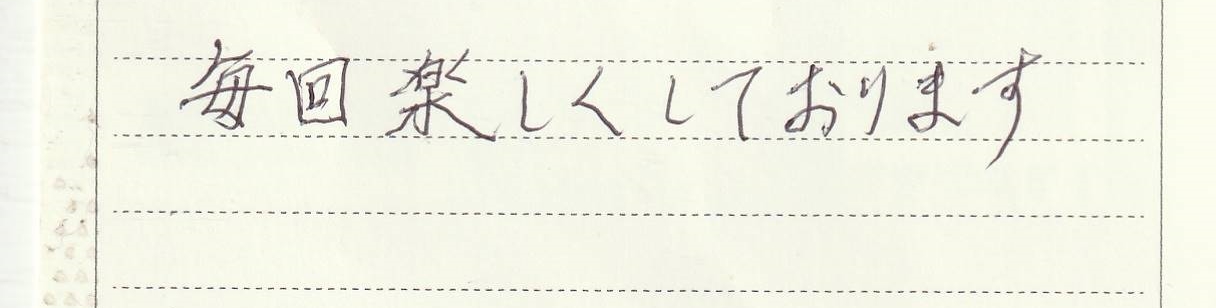 毎回楽しくしております